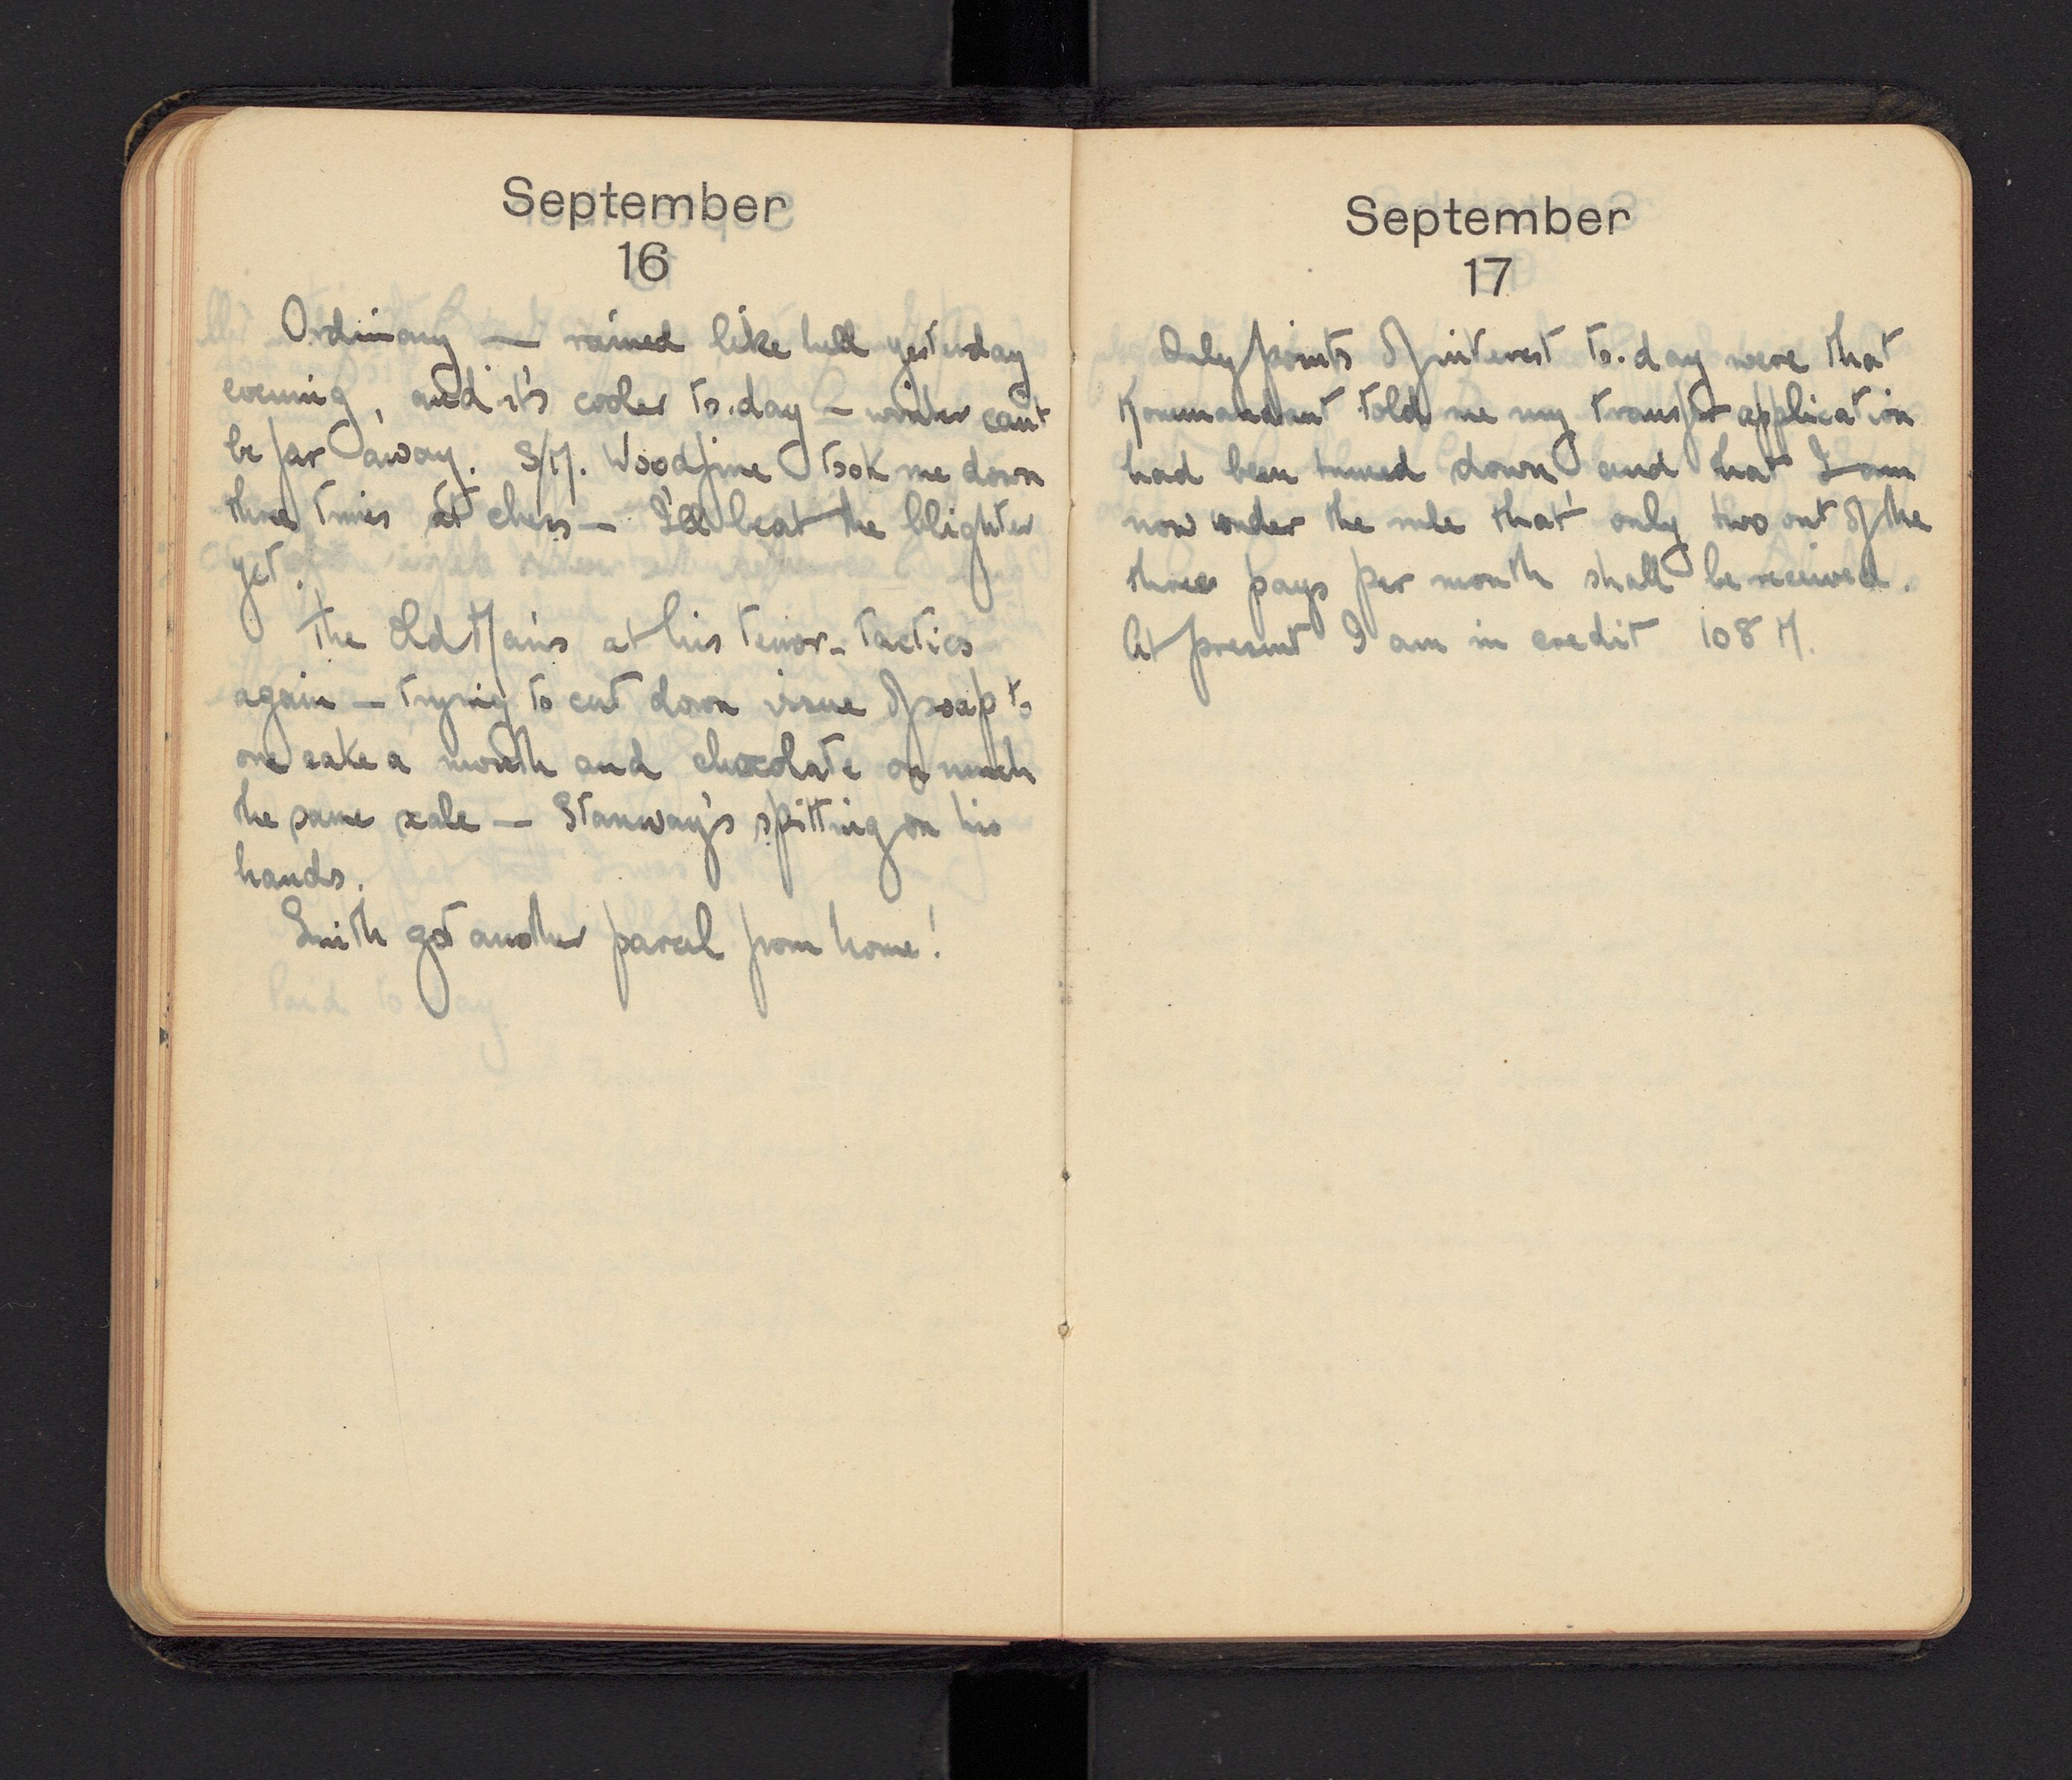 September
16
Ordinary — rained like hell yesterday
evening, and it's cooler to.day – winter can't
be far away. S/M. Woodfine took me down
three times at chess – I'll beat the blighter
yet.
The Old Man's at his terror-tactics
again – trying to cut down issue of soap to
one cake a month and chocolate on much
the same scale – Stanway's spitting on his
hands.
Smith got another parcel from home!
September
17
Only points of interest to.day were that
Kommandant told me my transfer application
had been turned down and that I am
now under the rule that only two out of the
three pays per month shall be received.
At present I am in credit 108 M.